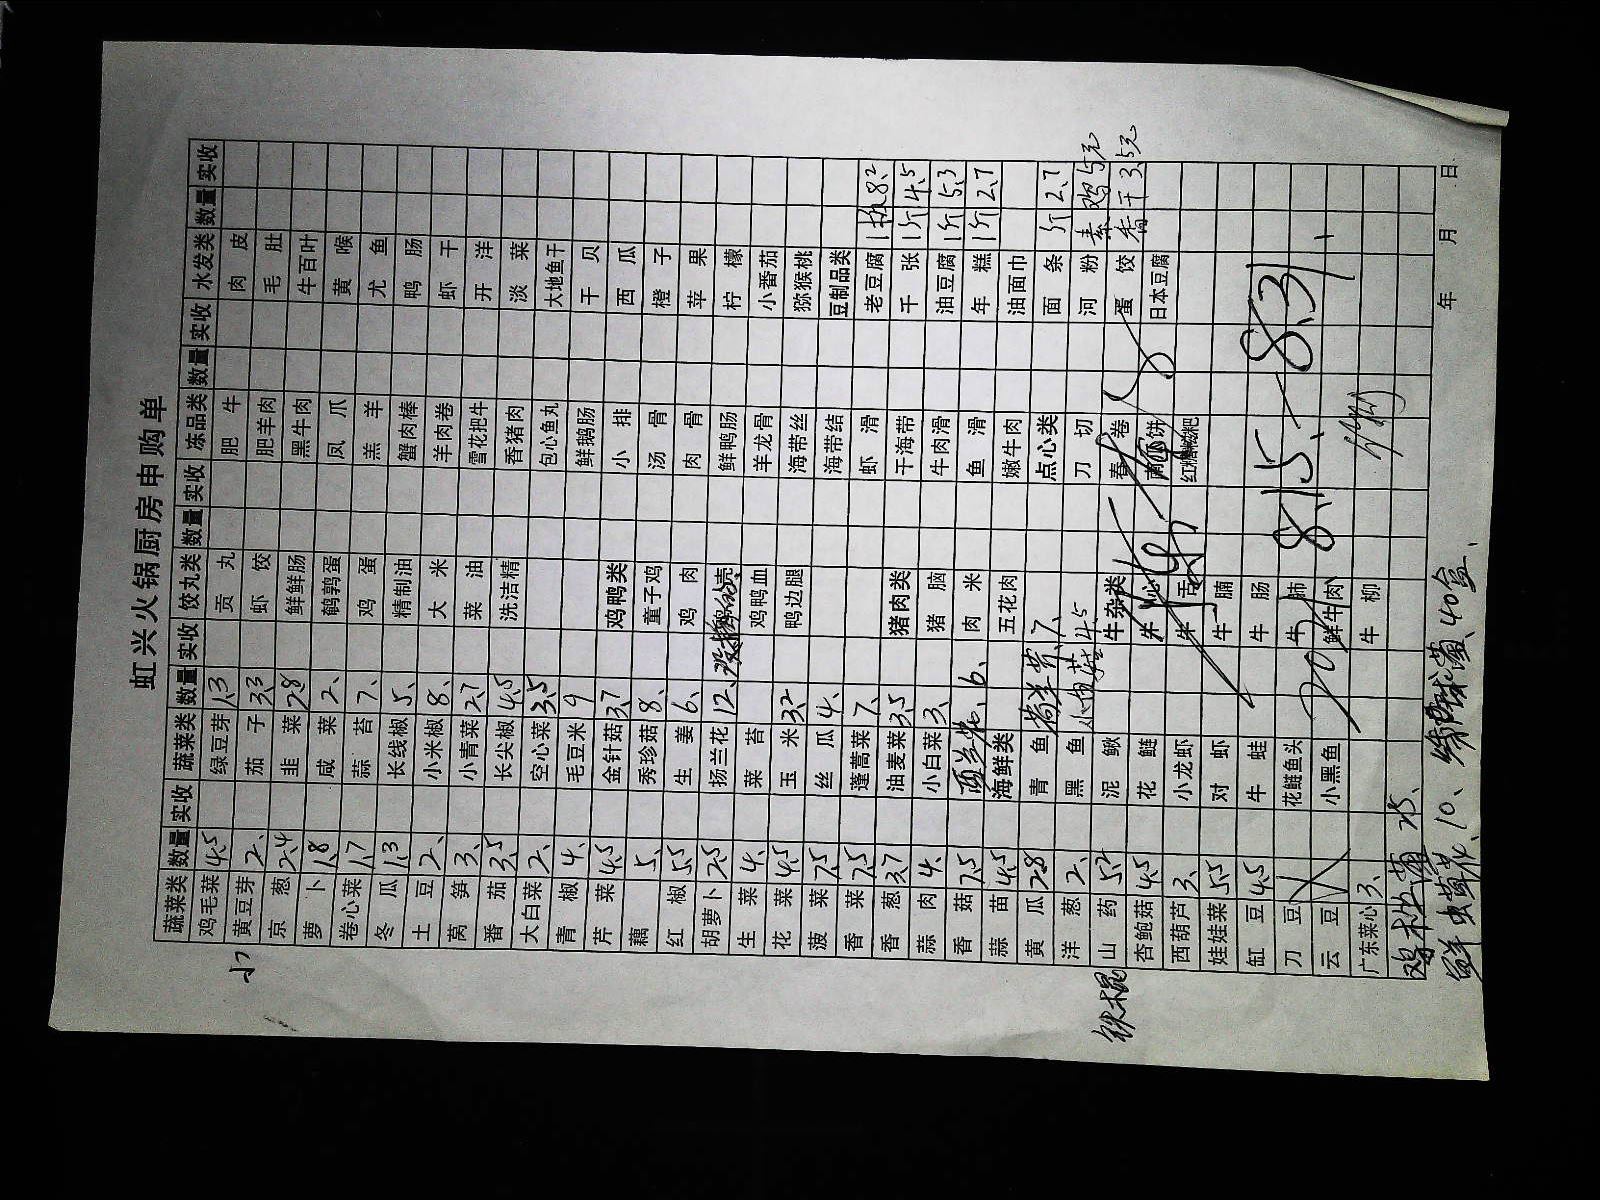 虹兴火锅厨房申购单
蔬菜类 数量 实收 蔬菜类 数量 实收 饺丸类 数量 实收 冻品类 数量 实收 水发类 数量 实收
鸡毛菜 4.5 绿豆芽 1.3 贡丸 肥牛 肉皮
黄豆芽 2、 茄子 3.3 虾饺 肥羊肉 毛肚
京葱 2.4 韭菜 2.8 鲜鲜肠 黑牛肉 牛百叶
萝卜 1.8 咸菜 2、 鹌鹑蛋 凤爪 黄喉
卷心菜 1.7 蒜苔 7、 鸡蛋 羔羊 尤鱼
冬瓜 1.3 长线椒 5、 精制油 蟹肉棒 鸭肠
土豆 2、 小米椒 8、 大米 羊肉卷 虾干
莴笋 3、 小青菜 2.7 菜油 雪花把牛 开洋
番茄 3.5 长尖椒 4.5 洗洁精 香猪肉 淡菜
大白菜 2、 空心菜 3.5 包心鱼丸 大地鱼干
青椒 4、 毛豆米 9 鲜鹅肠 干贝
芹菜 4.5 金针菇 3.7 鸡鸭类 小排 西瓜
藕 5、 秀珍菇 8、 童子鸡 汤骨 橙子
红椒 5.5 生姜 6、 鸡肉 肉骨 苹果
胡萝卜 2.5 扬兰花 12、 鲜鸭肠 柠檬
生菜 4、 菜苔 鸡鸭血 羊龙骨 小番茄
花菜 4.5 玉米 3.2 鸭边腿 海带丝 猕猴桃
菠菜 7.5 丝瓜 4、 海带结 豆制品类
香菜 7.5 蓬蒿菜 7、 虾滑 老豆腐 1板 8.2
香葱 3.7 油麦菜 3.5 猪肉类 干海带 千张 1斤 4.5
蒜肉 4、 小白菜 3、 猪脑 牛肉滑 油豆腐 1斤 5.3
香菇 7.5 西兰花 6、 肉米 鱼滑 年糕 1斤 2.7
蒜苗 4.5 海鲜类 五花肉 嫩牛肉 油面巾
黄瓜 2.8 青鱼 7、 点心类 面条 1斤 2.7
洋葱 2、 黑鱼 4.5 刀切 河粉 素鸡 5元
铁棍 山药 5.2 泥鳅 牛杂类 春卷 蛋饺 香干 3.5元
杏鲍菇 4.5 花鲢 牛心 南瓜饼 日本豆腐
西葫芦 3、 小龙虾 牛 红糖糍粑
娃娃菜 5.5 对虾 牛腩
缸豆 4.5 牛蛙 牛肠
刀豆 花鲢鱼头 牛肺
云豆 小黑鱼 鲜牛肉
广东菜心 3、 牛柳
8.15、—8.31、
年 月 日